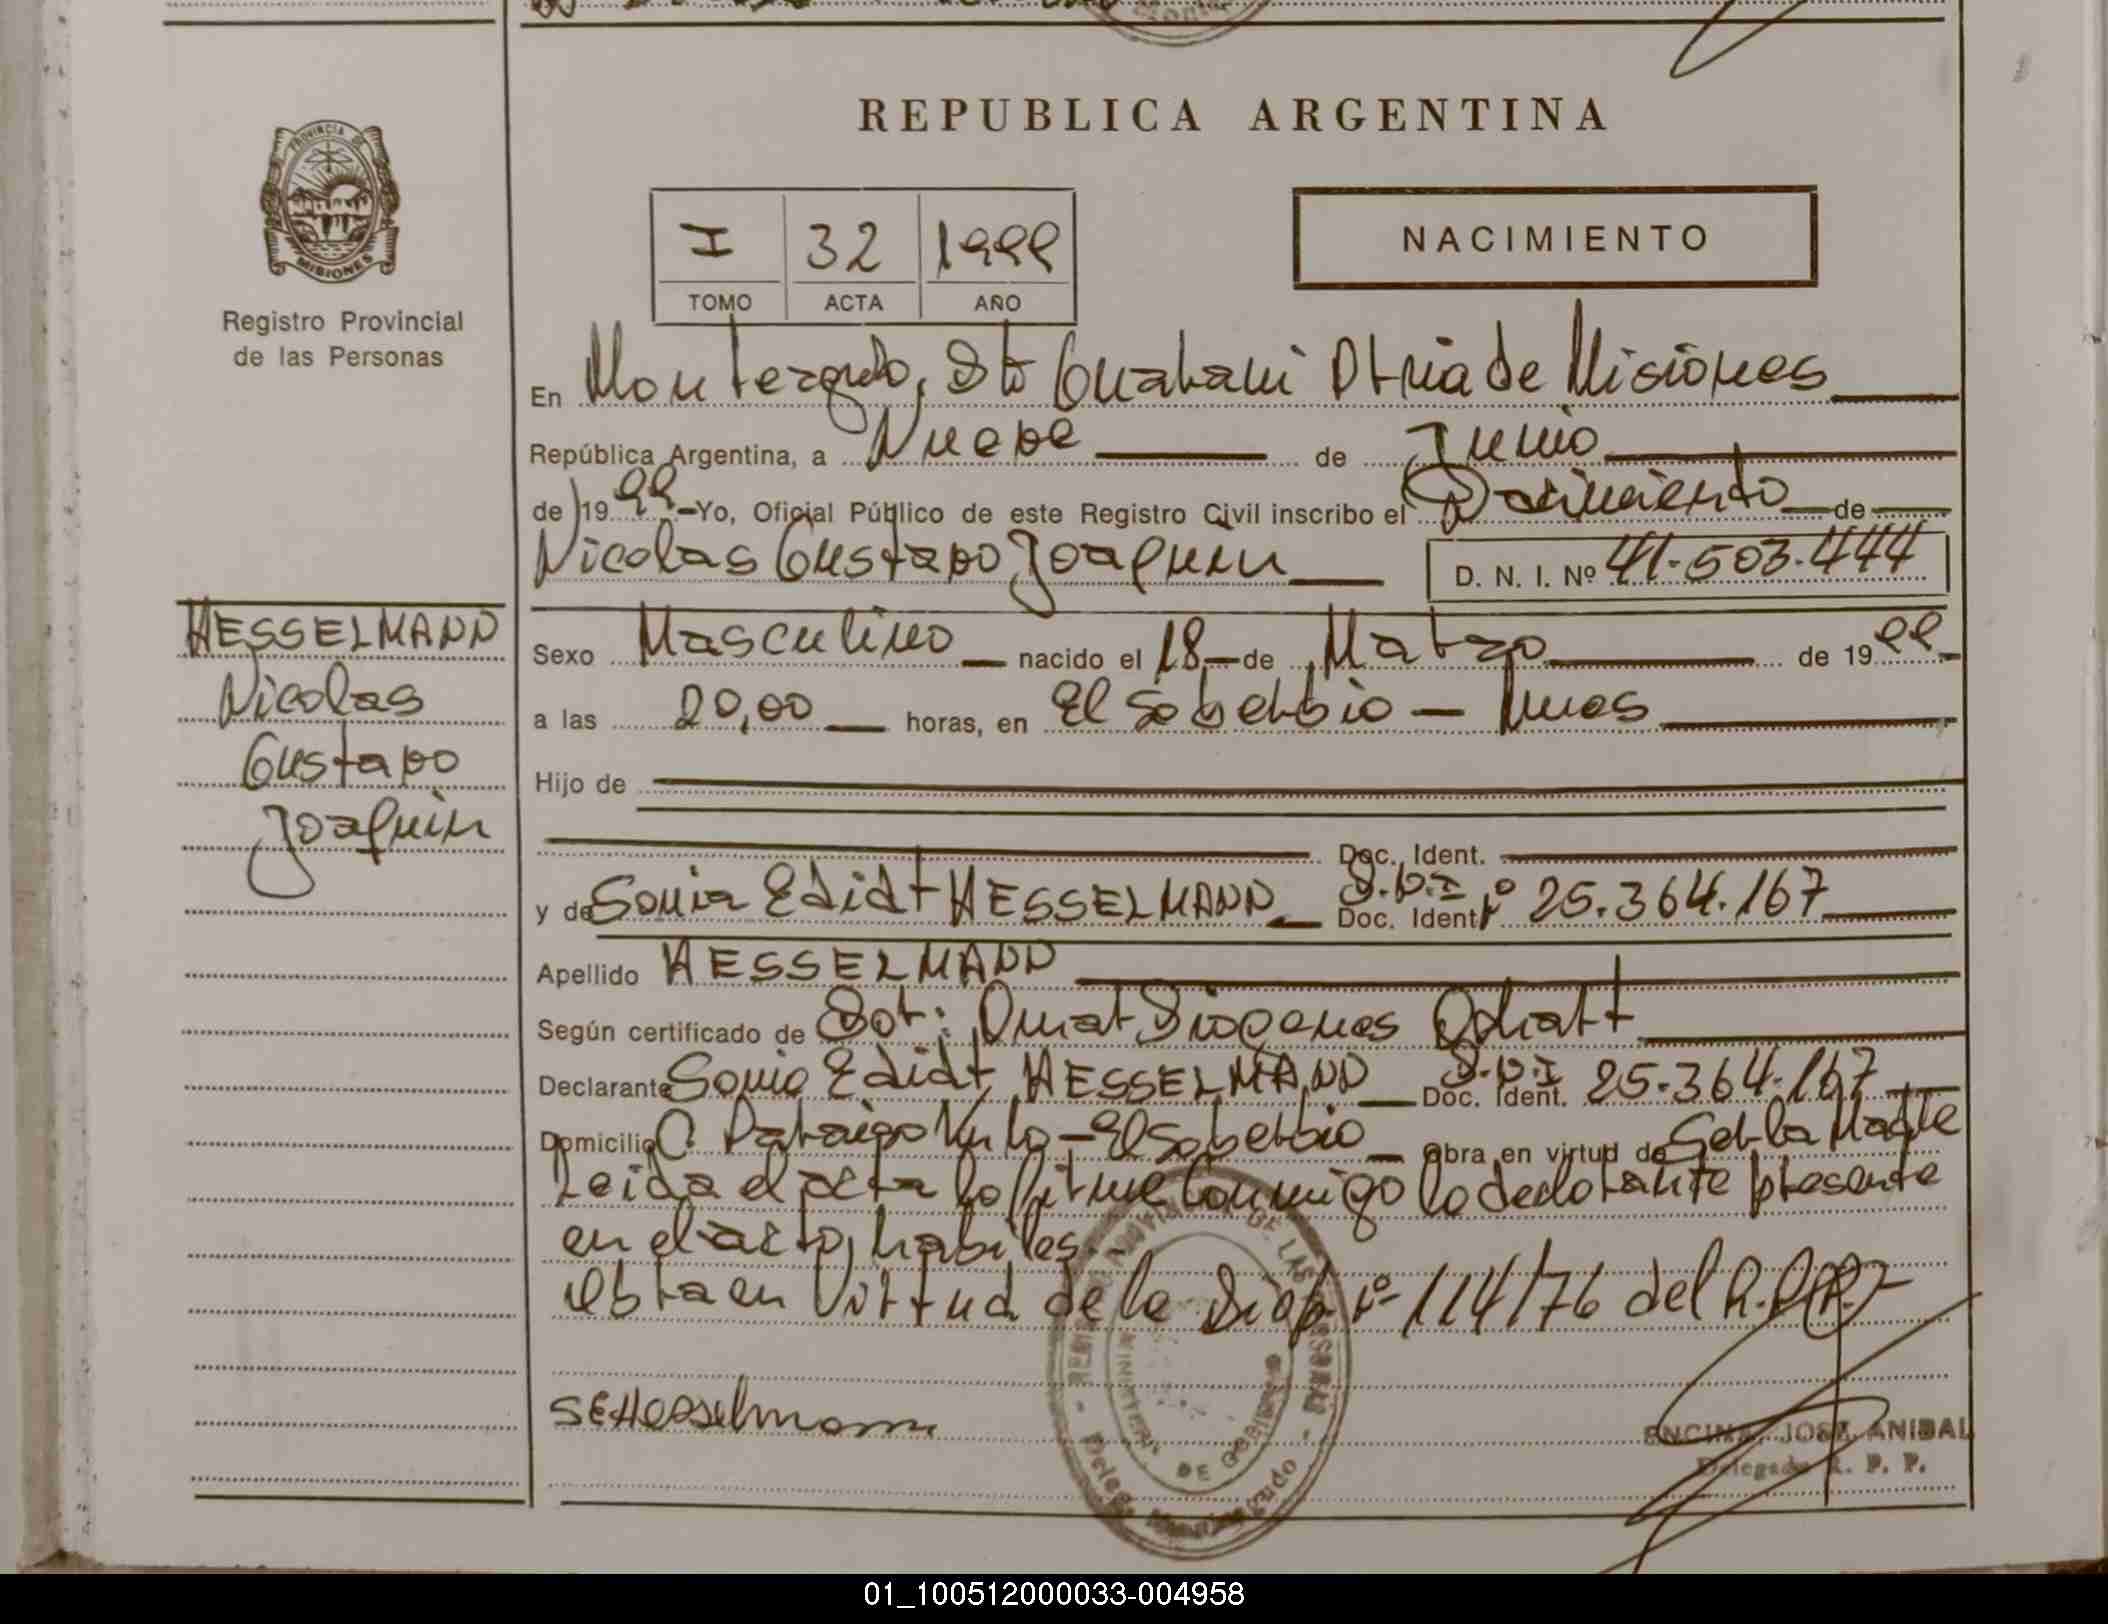 REPUBLICA ARGENTINA
PROVINCIA DE
MISIONES
Registro Provincial
de las Personas
I 32 1999
TOMO ACTA AÑO
NACIMIENTO
En Monteagudo, Dto Guarani Ptvia de Misiones
República Argentina, a Nueve de Junio
de 1999 - Yo, Oficial Público de este Registro Civil inscribo el Nacimiento de
Nicolas Gustavo Joaquin D. N. I. Nº 41.503.444
HESSELMANN
Nicolas
Gustavo
Joaquin
Sexo Masculino nacido el 18 de Marzo de 1999
a las 20,00 horas, en El Soberbio - Mnes
Hijo de
Doc. Ident.
y de Sonia Edidt HESSELMANN D.N.I Doc. Ident Nº 25.364.167
Apellido HESSELMANN
Según certificado de Dot: Omar Diogenes
Declarante Sonia Edidt HESSELMANN D.N.I Doc. Ident. 25.364.167
Domicilio - El Soberbio Obra en virtud de Ser la Madre
Leida el acta la firma conmigo la declarante presente
en el acto, habiles.
Obra en Virtud de la Disp. Nº 114/76 del R.P.P.
SEHesselmann
ENCINA, JOSE ANIBAL
Delegado R. P. P.
01_100512000033-004958